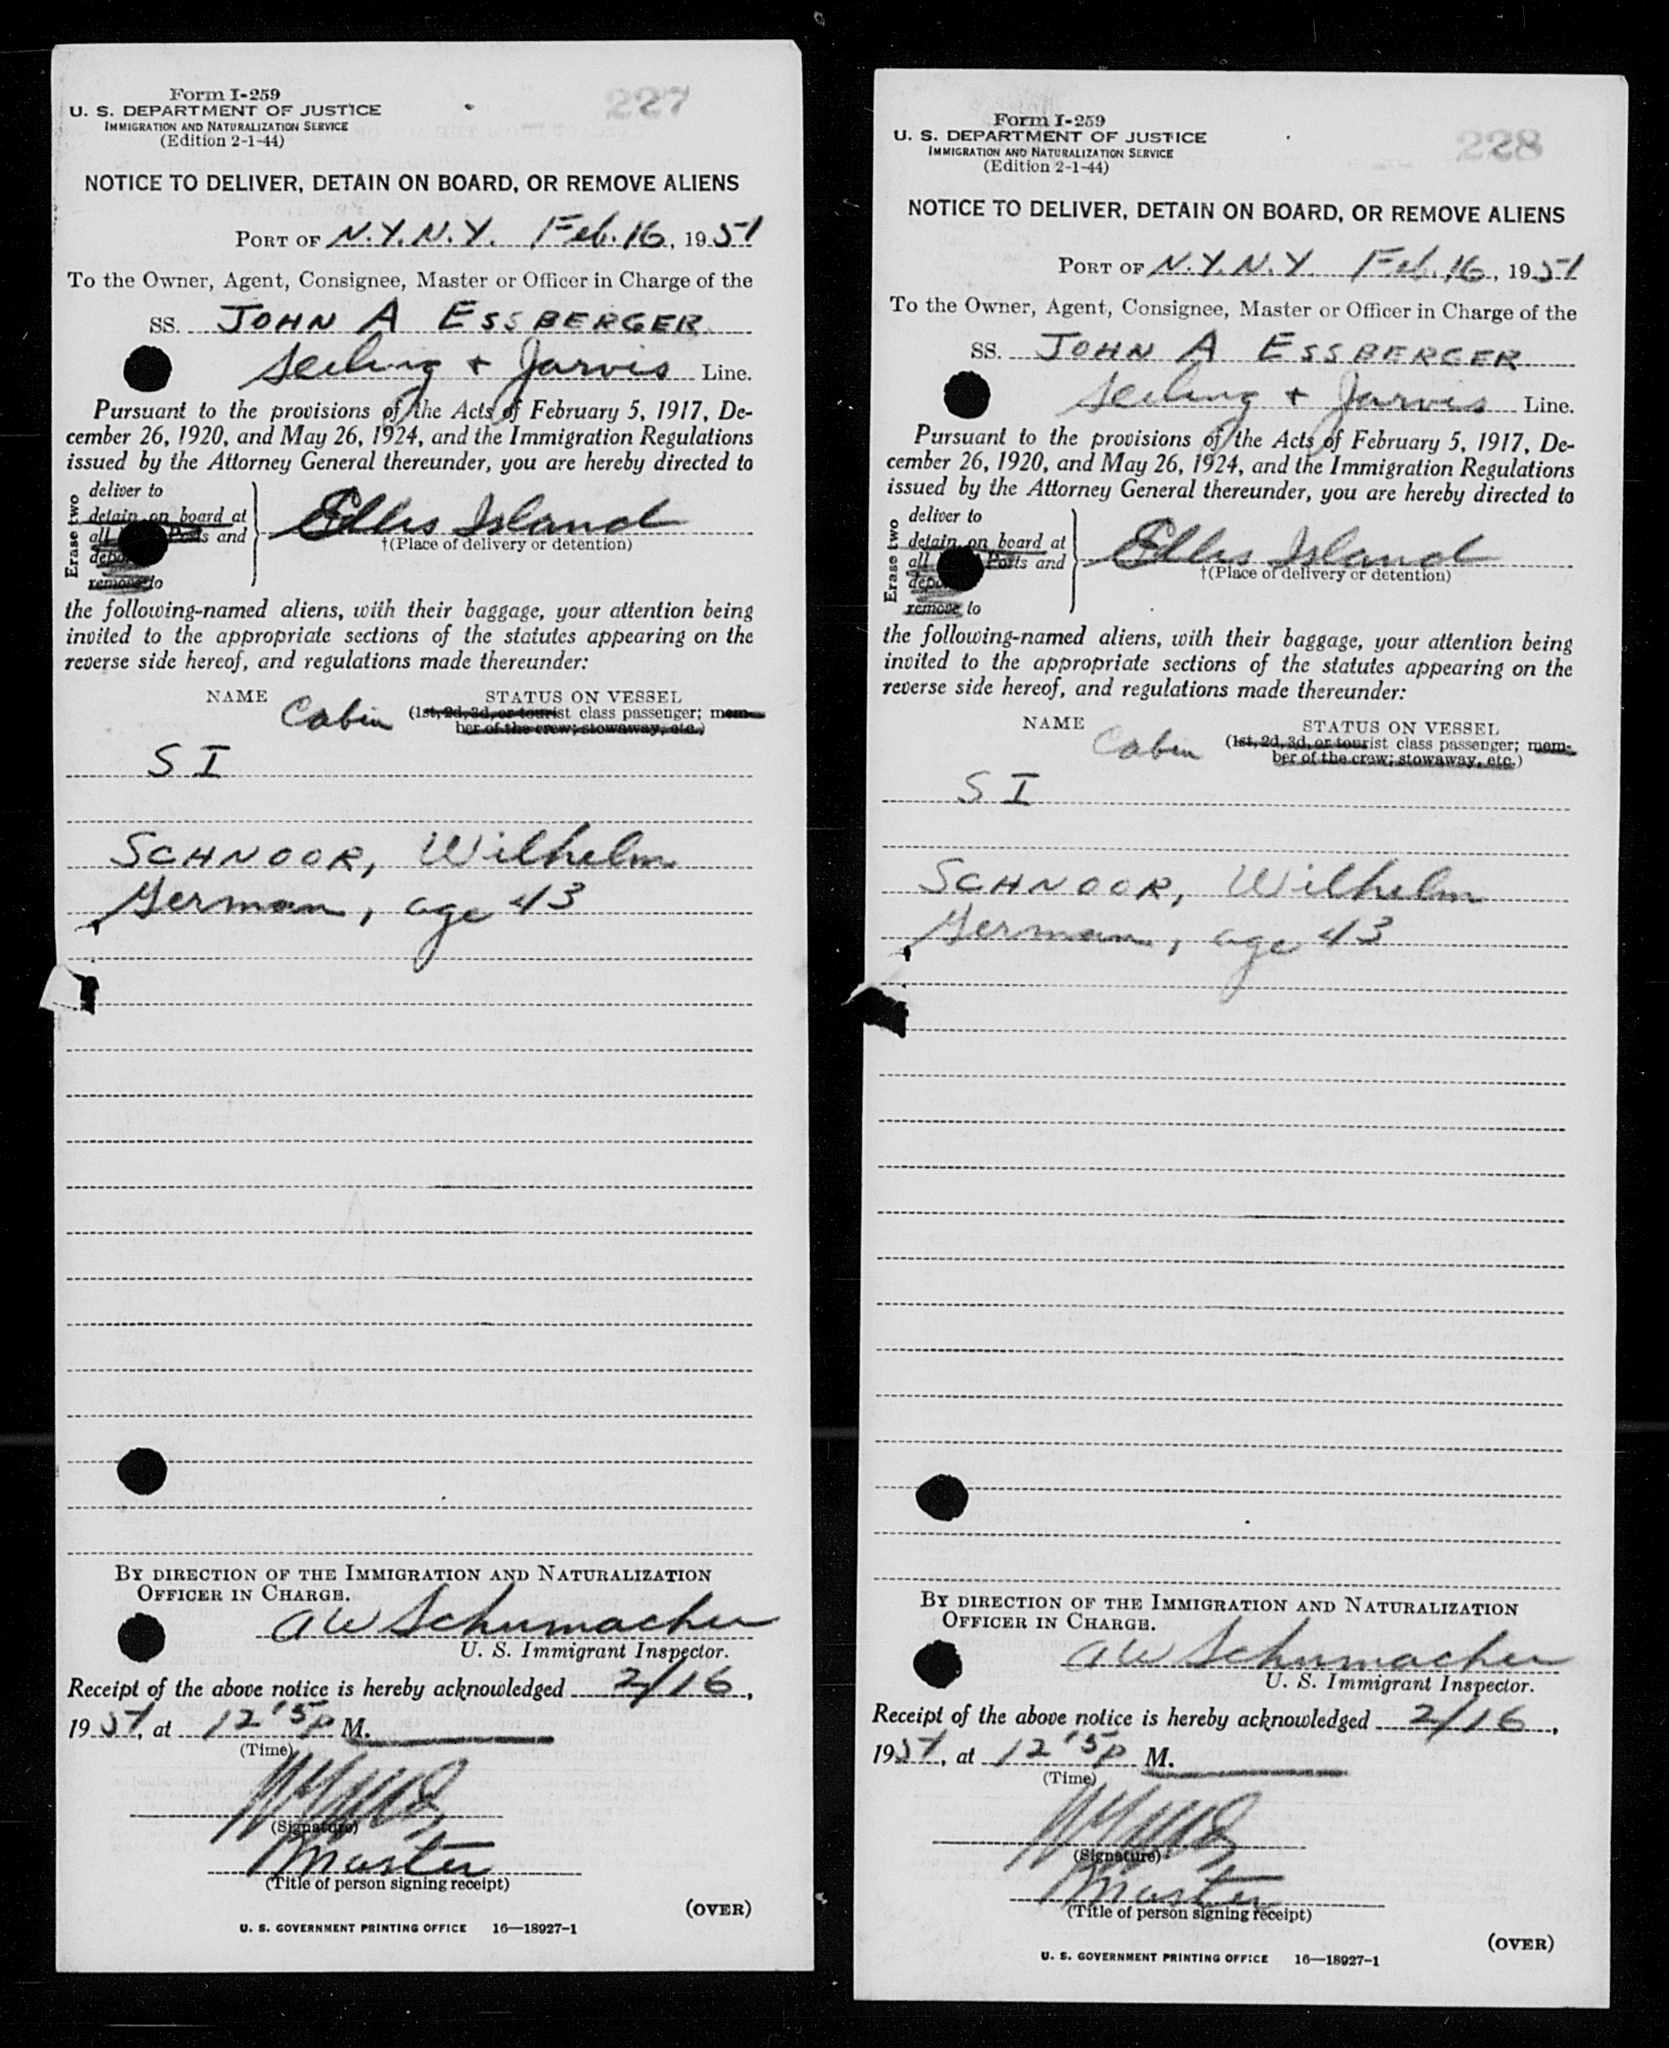 227
Form I-259
U. S. DEPARTMENT OF JUSTICE
IMMIGRATION AND NATURALIZATION SERVICE
(Edition 2-1-44)
NOTICE TO DELIVER, DETAIN ON BOARD, OR REMOVE ALIENS
PORT OF N.Y.N.Y. Feb. 16, 1951
To the Owner, Agent, Consignee, Master or Officer in Charge of the
SS. JOHN A ESSBERGER
Seiling + Jarvis Line.
Pursuant to the provisions of the Acts of February 5, 1917, De-
cember 26, 1920, and May 26, 1924, and the Immigration Regulations
issued by the Attorney General thereunder, you are hereby directed to
Erase two
deliver to
detain on board at
all Ports and
remove to
Ellis Island
†(Place of delivery or detention)
the following-named aliens, with their baggage, your attention being
invited to the appropriate sections of the statutes appearing on the
reverse side hereof, and regulations made thereunder:
NAME STATUS ON VESSEL
Cabin (1st, 2d, 3d, or tourist class passenger; mem-
ber of the crew; stowaway, etc.)
S I
SCHNOOR, Wilhelm
German, age 43
BY DIRECTION OF THE IMMIGRATION AND NATURALIZATION
OFFICER IN CHARGE.
A W Schumacher
U. S. Immigrant Inspector.
Receipt of the above notice is hereby acknowledged 2/16,
1951, at 12'5P M.
(Time)
(Signature)
Master
(Title of person signing receipt)
(OVER)
U. S. GOVERNMENT PRINTING OFFICE 16—18927-1
228
Form I-259
U. S. DEPARTMENT OF JUSTICE
IMMIGRATION AND NATURALIZATION SERVICE
(Edition 2-1-44)
NOTICE TO DELIVER, DETAIN ON BOARD, OR REMOVE ALIENS
PORT OF N.Y.N.Y. Feb. 16, 1951
To the Owner, Agent, Consignee, Master or Officer in Charge of the
SS. JOHN A ESSBERGER
Seiling + Jarvis Line.
Pursuant to the provisions of the Acts of February 5, 1917, De-
cember 26, 1920, and May 26, 1924, and the Immigration Regulations
issued by the Attorney General thereunder, you are hereby directed to
Erase two
deliver to
detain on board at
all Ports and
remove to
Ellis Island
†(Place of delivery or detention)
the following-named aliens, with their baggage, your attention being
invited to the appropriate sections of the statutes appearing on the
reverse side hereof, and regulations made thereunder:
NAME STATUS ON VESSEL
Cabin (1st, 2d, 3d, or tourist class passenger; mem-
ber of the crew; stowaway, etc.)
S I
SCHNOOR, Wilhelm
German, age 43
BY DIRECTION OF THE IMMIGRATION AND NATURALIZATION
OFFICER IN CHARGE.
A W Schumacher
U. S. Immigrant Inspector.
Receipt of the above notice is hereby acknowledged 2/16,
1951, at 12'5P M.
(Time)
(Signature)
Master
(Title of person signing receipt)
(OVER)
U. S. GOVERNMENT PRINTING OFFICE 16—18927-1